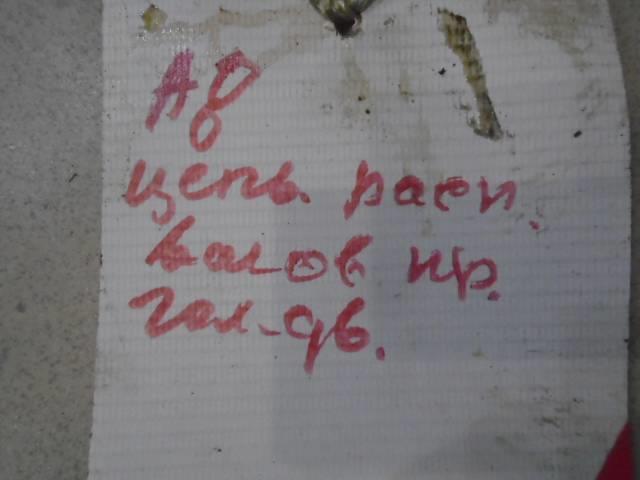 А8
цепь расп.
валов пр.
гол-дв.